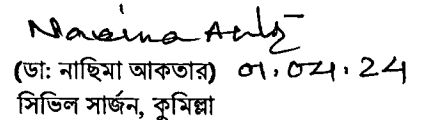 Nasima Akter
(ডা: নাছিমা আকতার) 01.04.24
সিভিল সার্জন, কুমিল্লা